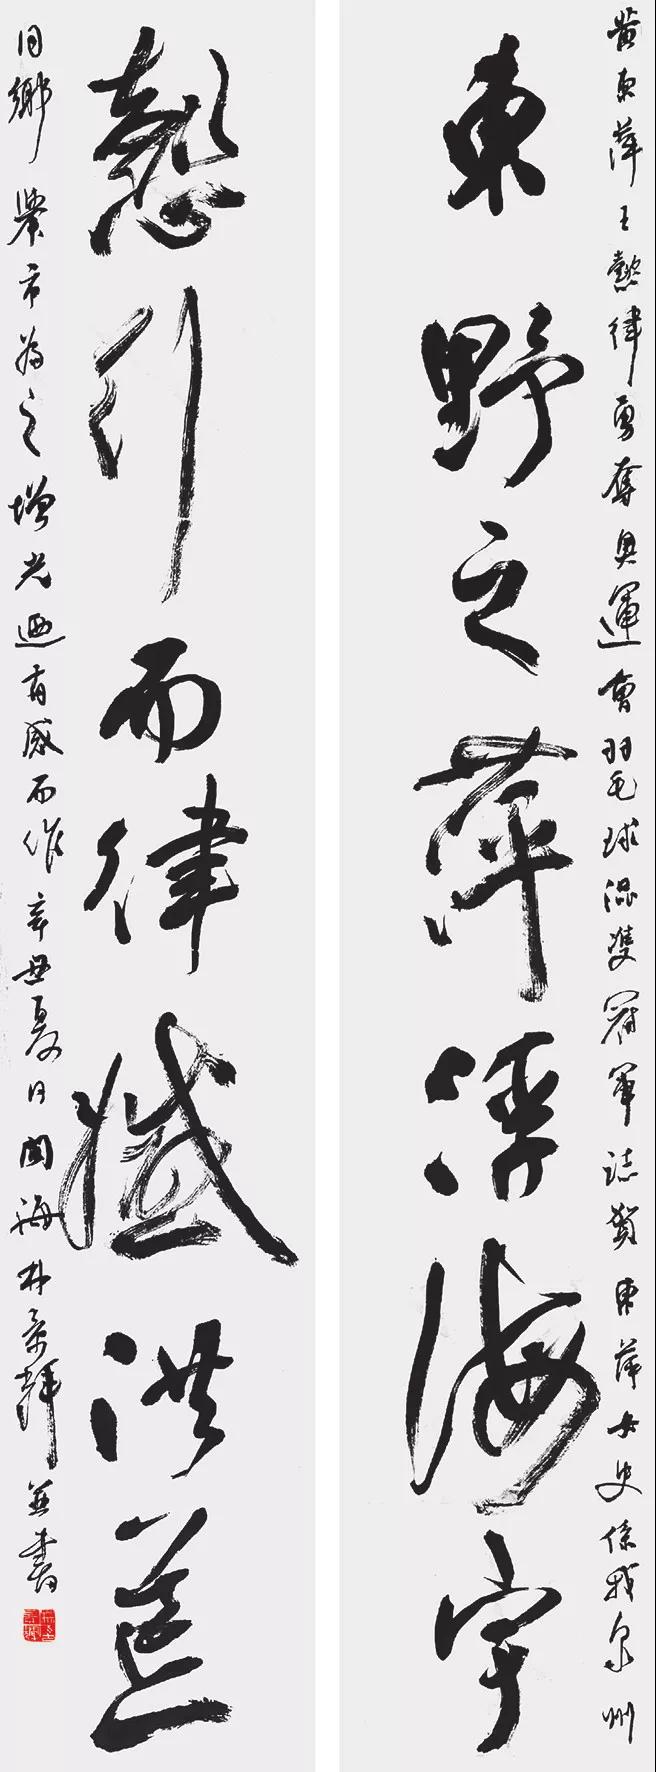 黄東萍王懿律勇奪奥運會羽毛球混雙冠軍誌賀東萍女史係我泉州
東野之萍浮海宇
懿行而律殲洪
同鄉舉市為之增光迺有感而作辛丑夏日閩海林景輝並書